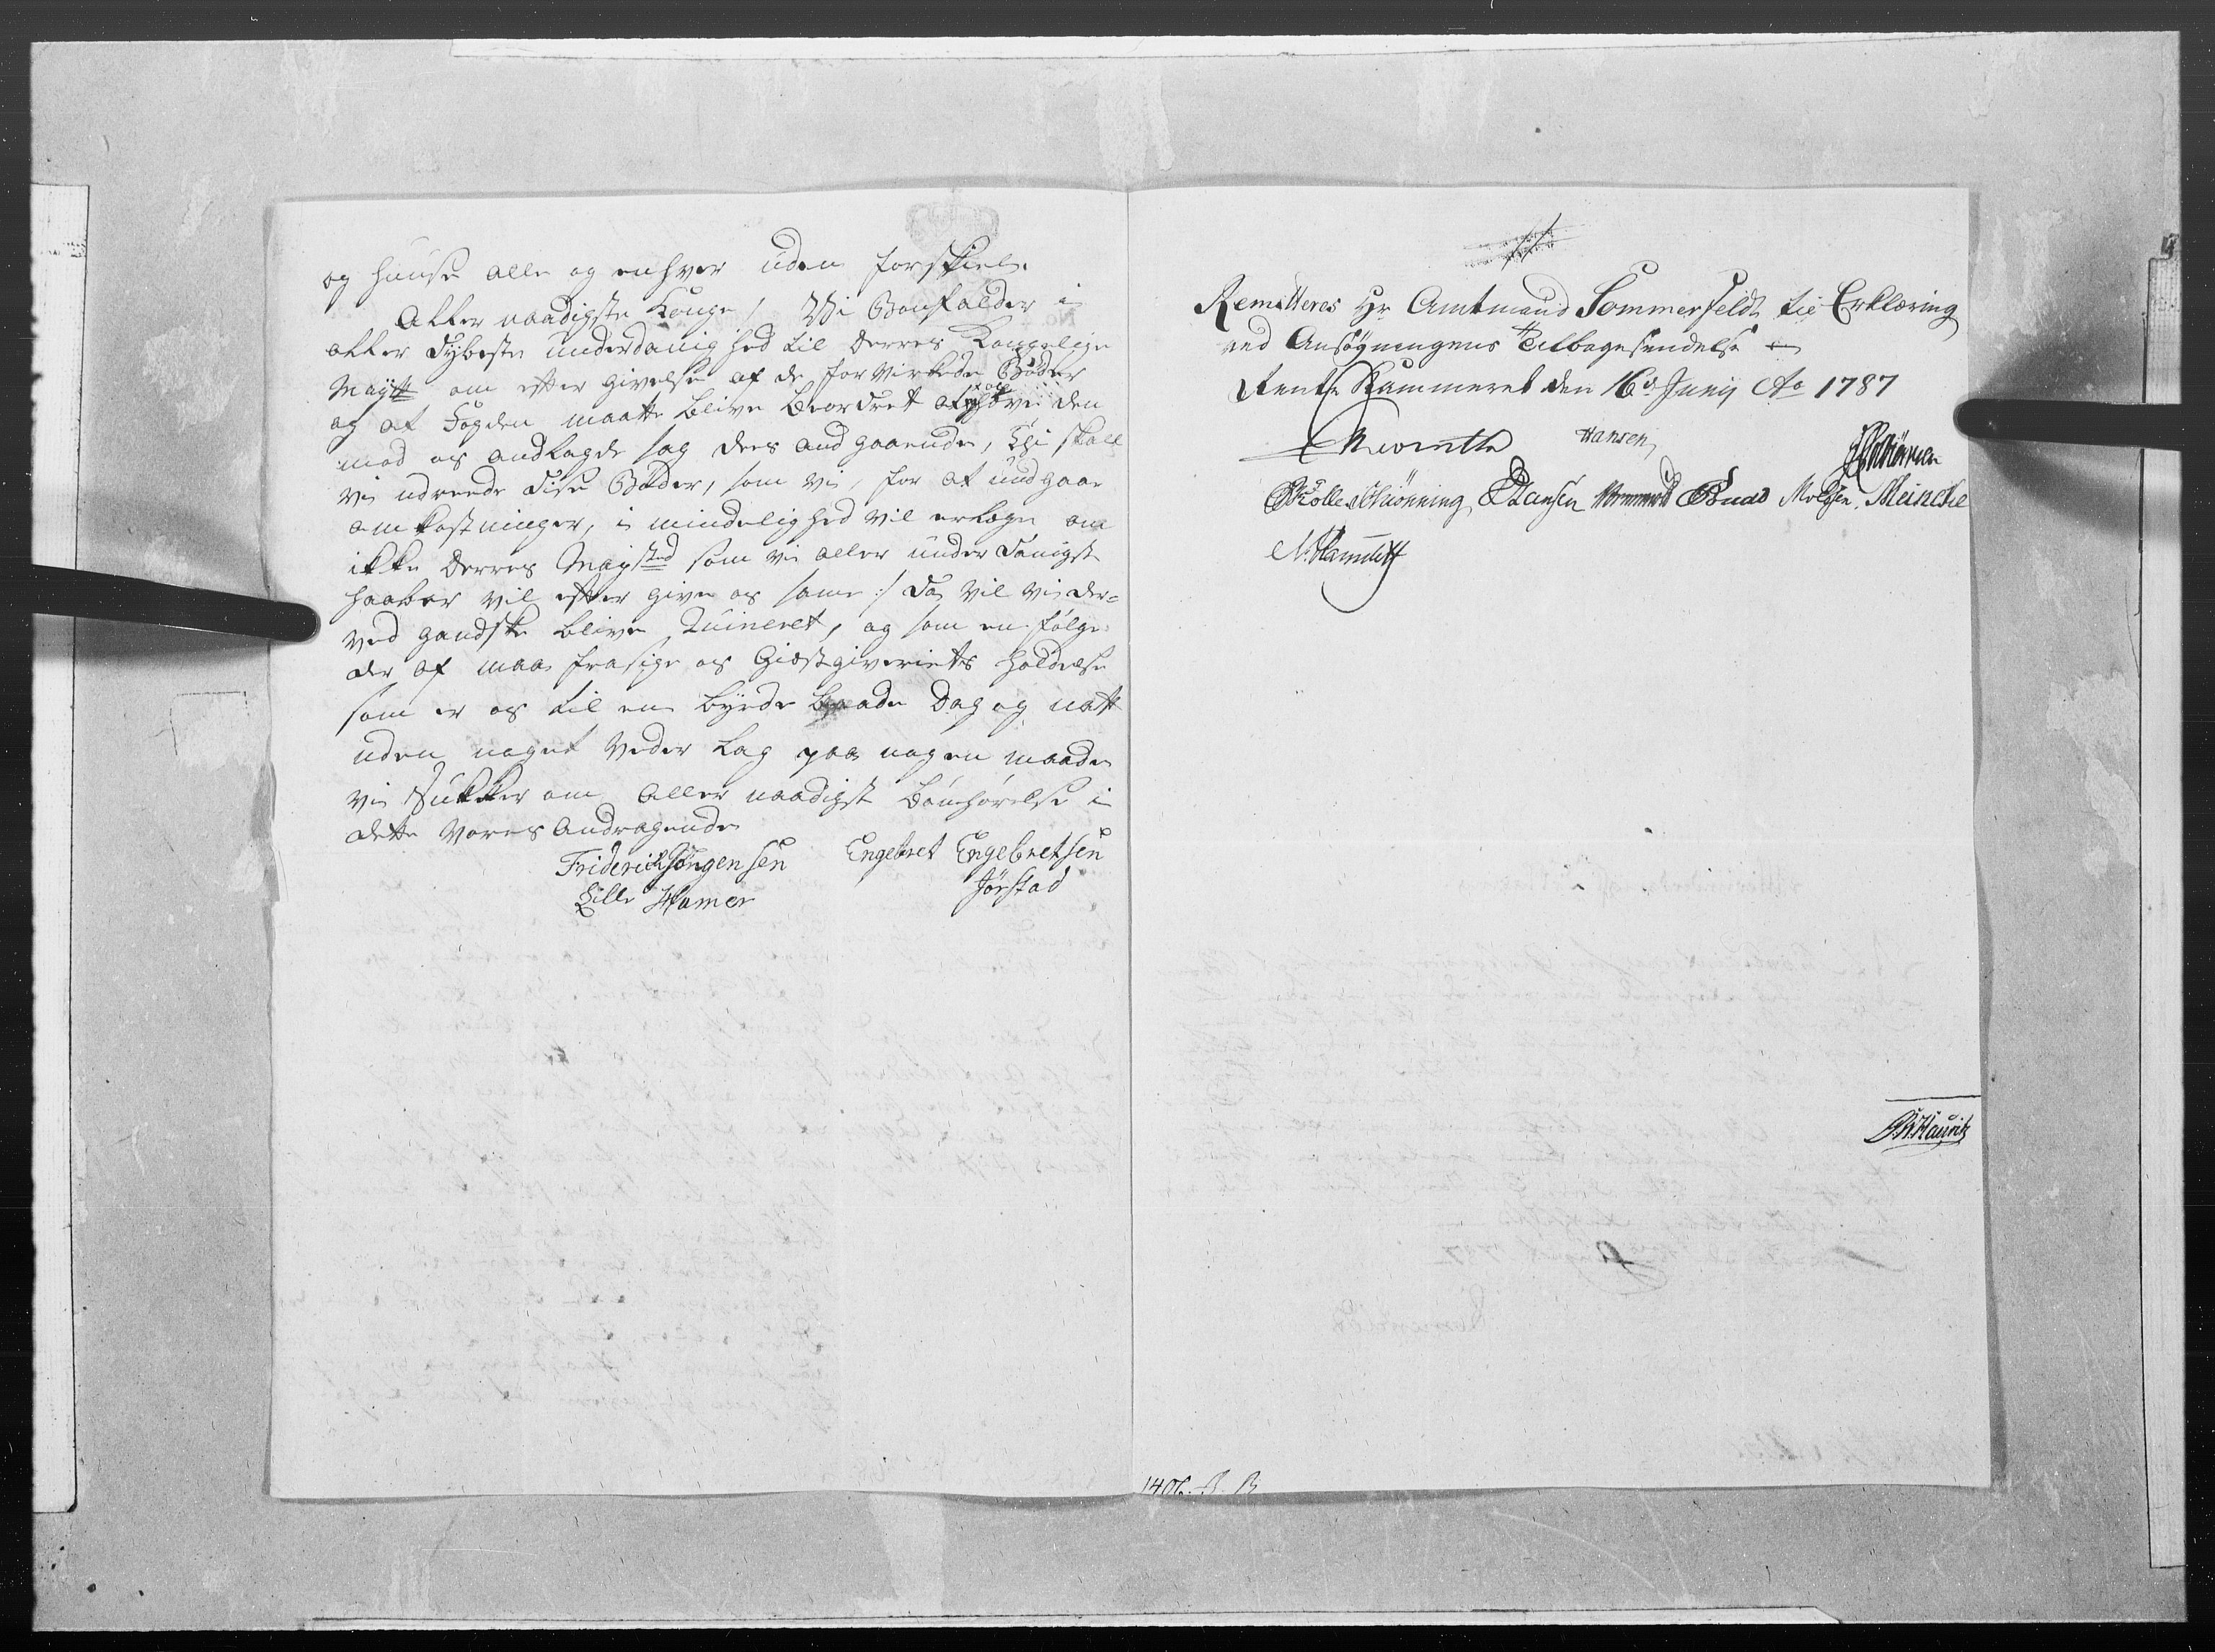 og huuse alle og enhver uden forskiel.
Aller naadigste Konge, Vi Bønfalder i
aller dybeste underdanighed til Derres Kongelige
Mayst om efter givelse af de forvirkede Bøder
og at Fogden maatte blive beordret at ophøve den
mod os andlagde sag dens andgaaende, thi skall
vi udreede disse Bøder, som vi, for at undgaae
omkostninger, i mindelighed vil erlægge om
ikke Derres Maysted som vi aller underdanigst
haaber vil efter give os samme :/ da vil vi der=
ved gandske blive Ruineret, og som en følge
der af maa frasige os Giæstgiveriets holdelse
som er os til en byrde baade Dag og natt
uden noget Vederlag paa nogen maade
vi Sukker om Aller naadigst Bønhørelse i
dette Vores Andragende
Friderich Jørgensen Engebret Engebretsen
Lille Hamer Jørstad
Remitteres Hr Amtmand Sommerfeldt til Erklæring
ved Ansøgningens Tilbagesendelse
Rente Kammeret den 16d Junij Ao 1787
Hansen
Schiönning Hansen Meincke
1406.